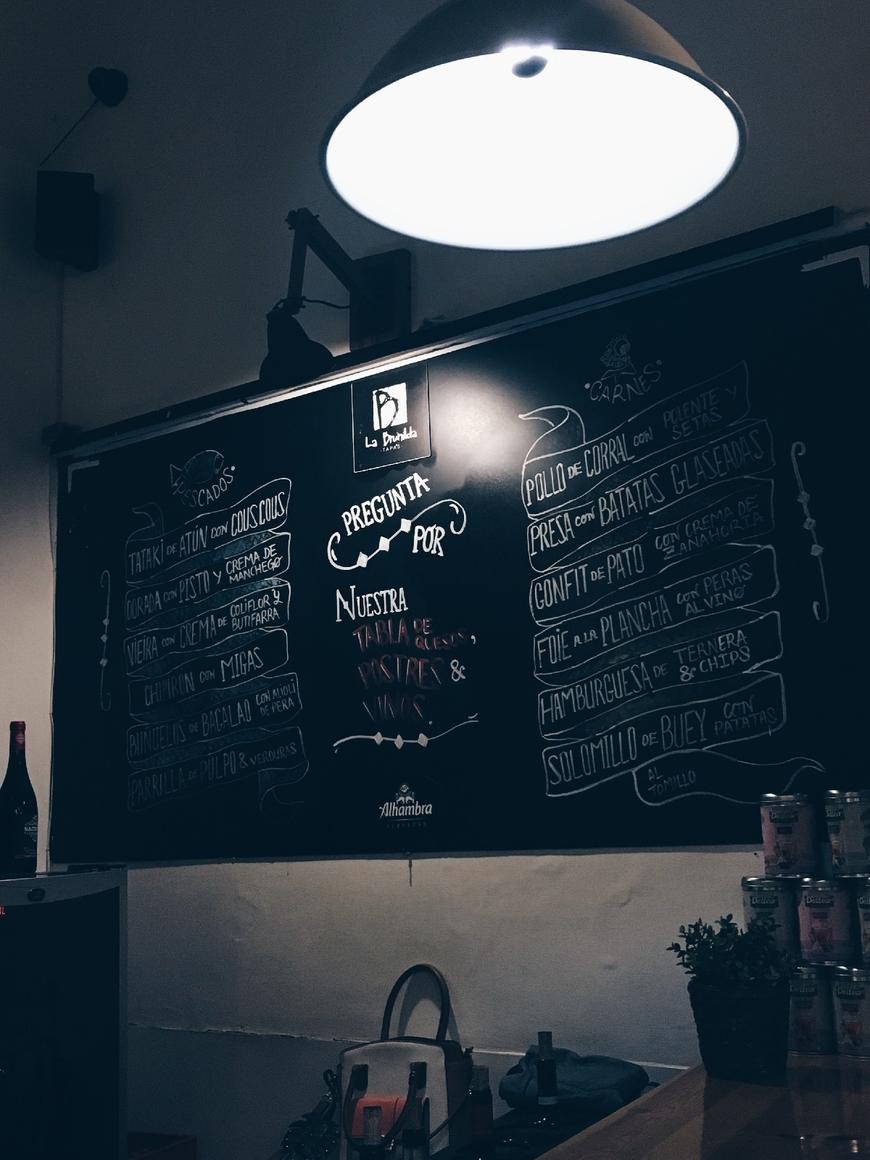 PESCADOS
TATAKI DE ATUN CON COUS COUS
DORADA CON PISTO Y CREMA DE
MANCHEGO
VIEIRA CON CREMA DE COLIFLOR Y
BUTIFARRA
CHIPIRON CON MIGAS
BUÑUELOS DE BACALAO CON ALIOLI
DE PERA
PARRILLA DE PULPO & VERDURAS
La Brunilda
TAPAS
PREGUNTA
POR
NUESTRA
TABLA DE
QUESOS,
POSTRES &
VINOS.
Alhambra
CARNES
POLLO DE CORRAL CON POLENTE Y
SETAS
PRESA CON BATATAS GLASEADAS
CONFIT DE PATO CON CREMA DE
ZANAHORIA
FOIE A LA PLANCHA CON PERAS
AL VINO
HAMBURGUESA DE TERNERA
& CHIPS
SOLOMILLO DE BUEY CON
PATATAS
AL
TOMILLO